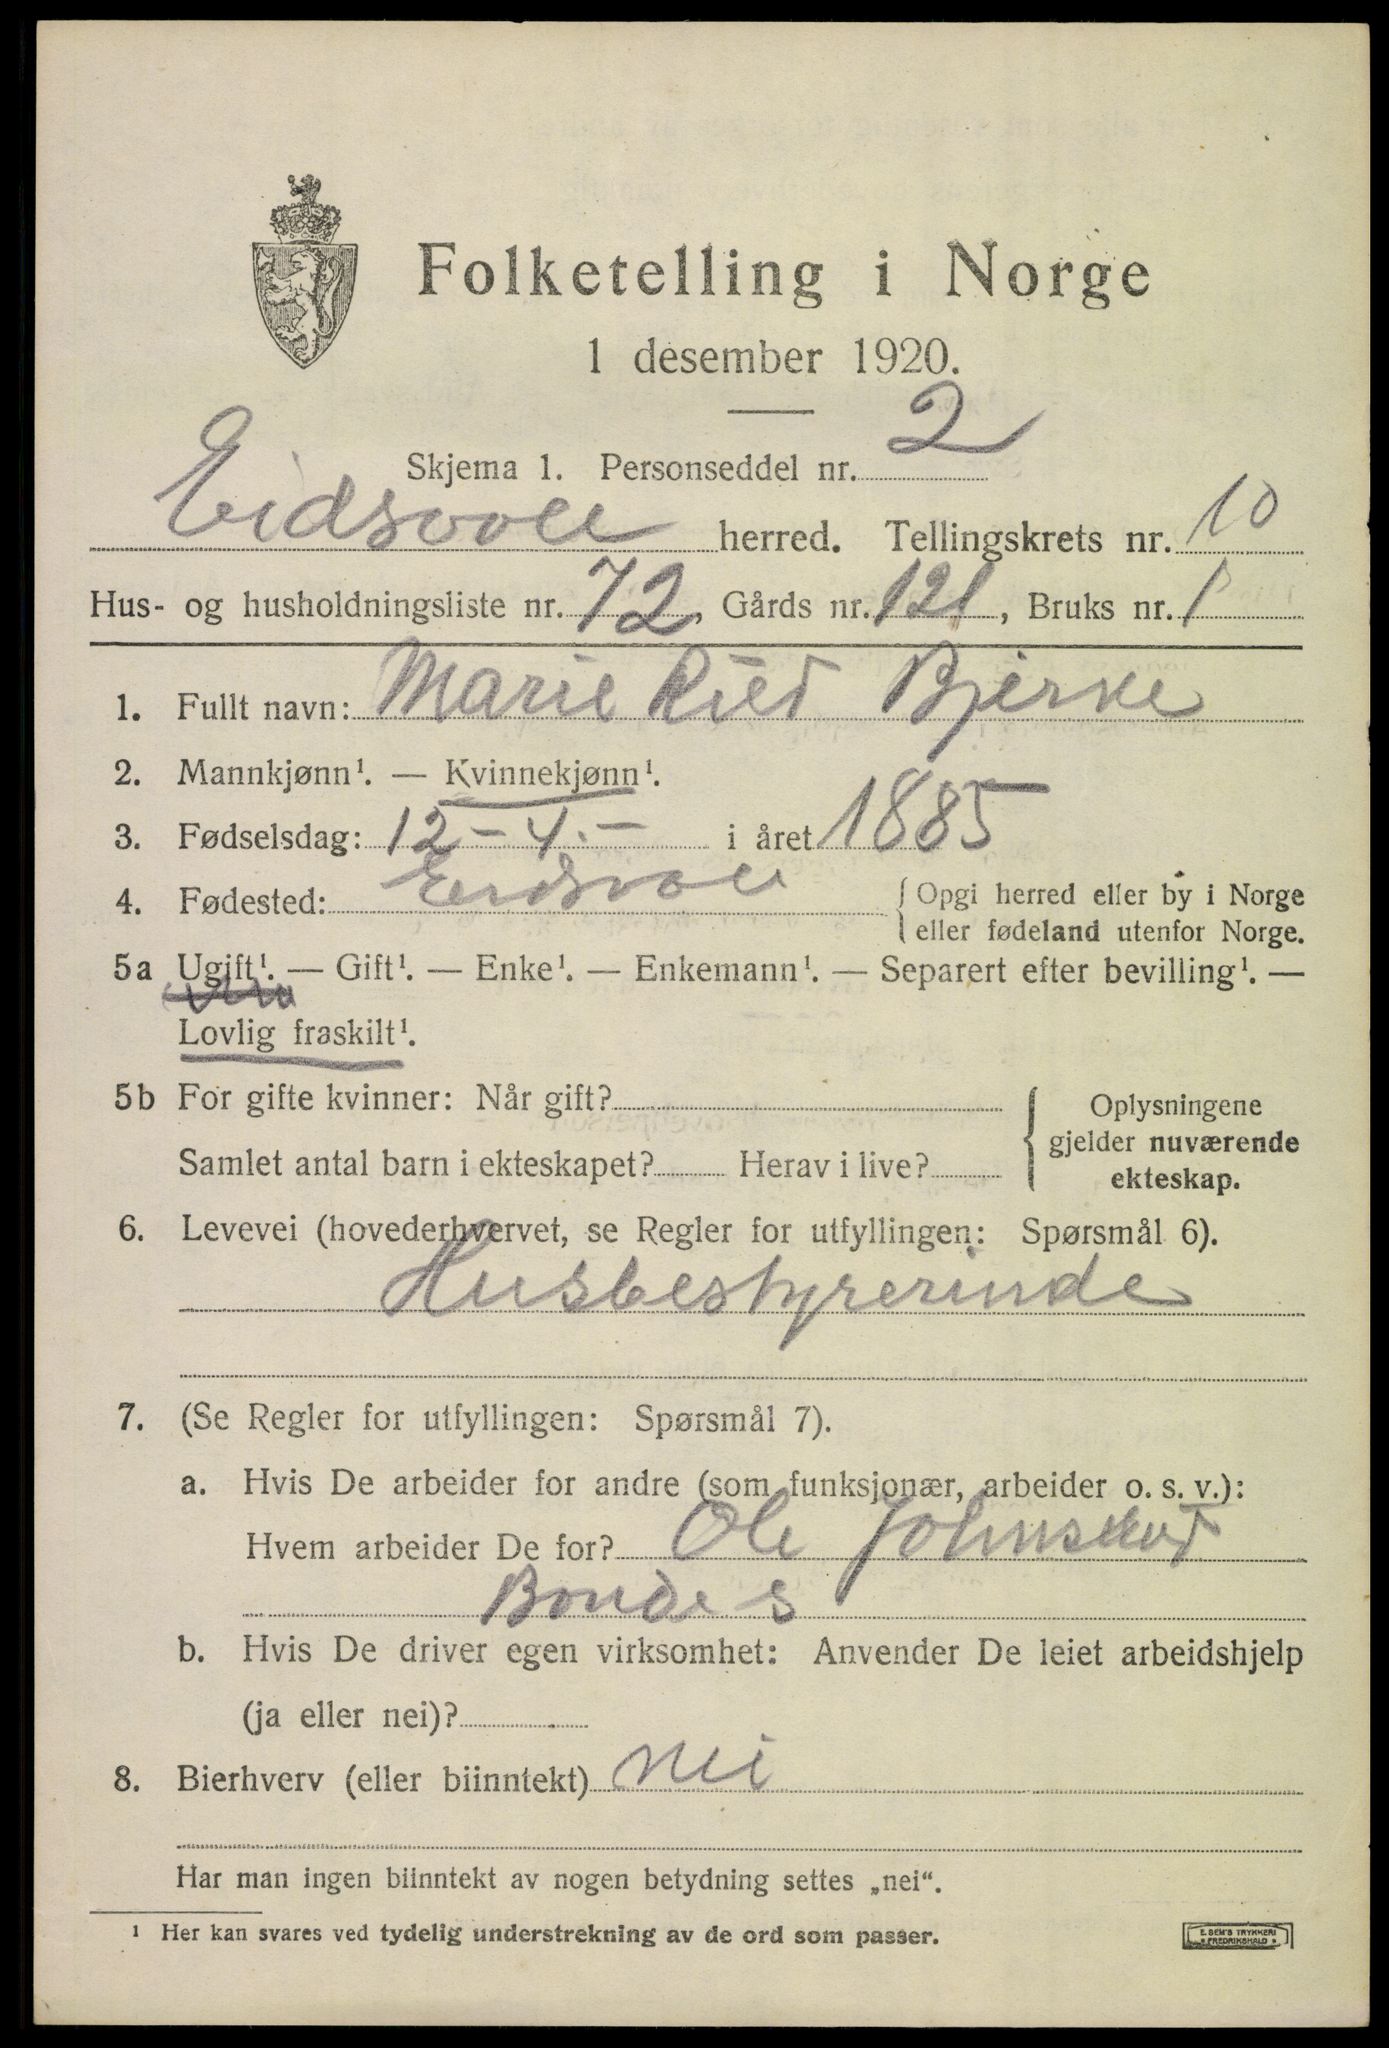 Folketelling i Norge
1 desember 1920.
Skjema 1. Personseddel nr. 2
Eidsvoll herred. Tellingskrets nr. 10
Hus- og husholdningsliste nr. 72, Gårds nr. 121, Bruks nr. 1
1. Fullt navn: Marie Ried Bjerke
2. Mannkjønn¹. — Kvinnekjønn¹.
3. Fødselsdag: 12 – 4. – i året 1885
4. Fødested: Eidsvoll {Opgi herred eller by i Norge
eller fødeland utenfor Norge.
5a Ugift¹. — Gift¹. — Enke¹. — Enkemann¹. — Separert efter bevilling¹. —
Lovlig fraskilt¹.
5b For gifte kvinner: Når gift?
Samlet antal barn i ekteskapet? Herav i live?
{ Oplysningene
gjelder nuværende
ekteskap.
6. Levevei (hovederhvervet, se Regler for utfyllingen: Spørsmål 6).
Husbestyrerinde
7. (Se Regler for utfyllingen: Spørsmål 7).
a. Hvis De arbeider for andre (som funksjonær, arbeider o. s. v.):
Hvem arbeider De for? Ole Johnskud
Bonde s
b. Hvis De driver egen virksomhet: Anvender De leiet arbeidshjelp
(ja eller nei)?
8. Bierhverv (eller biinntekt) nei
Har man ingen biinntekt av nogen betydning settes „nei“.
¹ Her kan svares ved tydelig understrekning av de ord som passer.
E. SEM'S TRYKKERI
* FREDRIKSHALD *